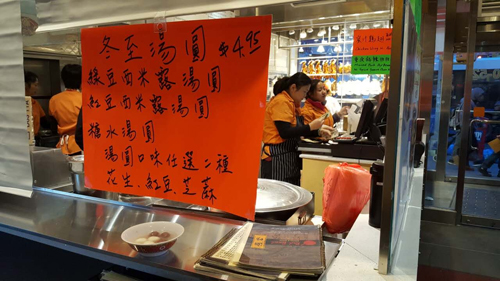 冬至湯圓 $4.95
綠豆西米露湯圓
紅豆西米露湯圓
糖水湯圓
湯圓口味任選二種
花生、紅豆、芝蔴